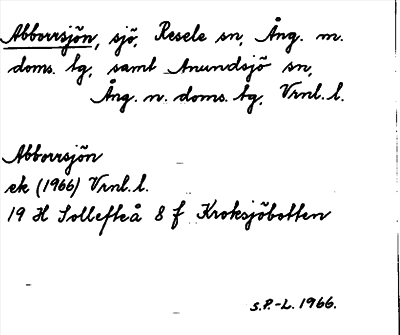 Abborrsjön, sjö, Resele sn, Ång. m.
doms. tg, samt Anundsjö sn,
Ång. n. doms. tg, Vrnl. l.
Abborrsjön
ek (1966) Vrnl. l.
19 H Sollefteå 8 f Kroksjöbotten
S.P.-L. 1966.